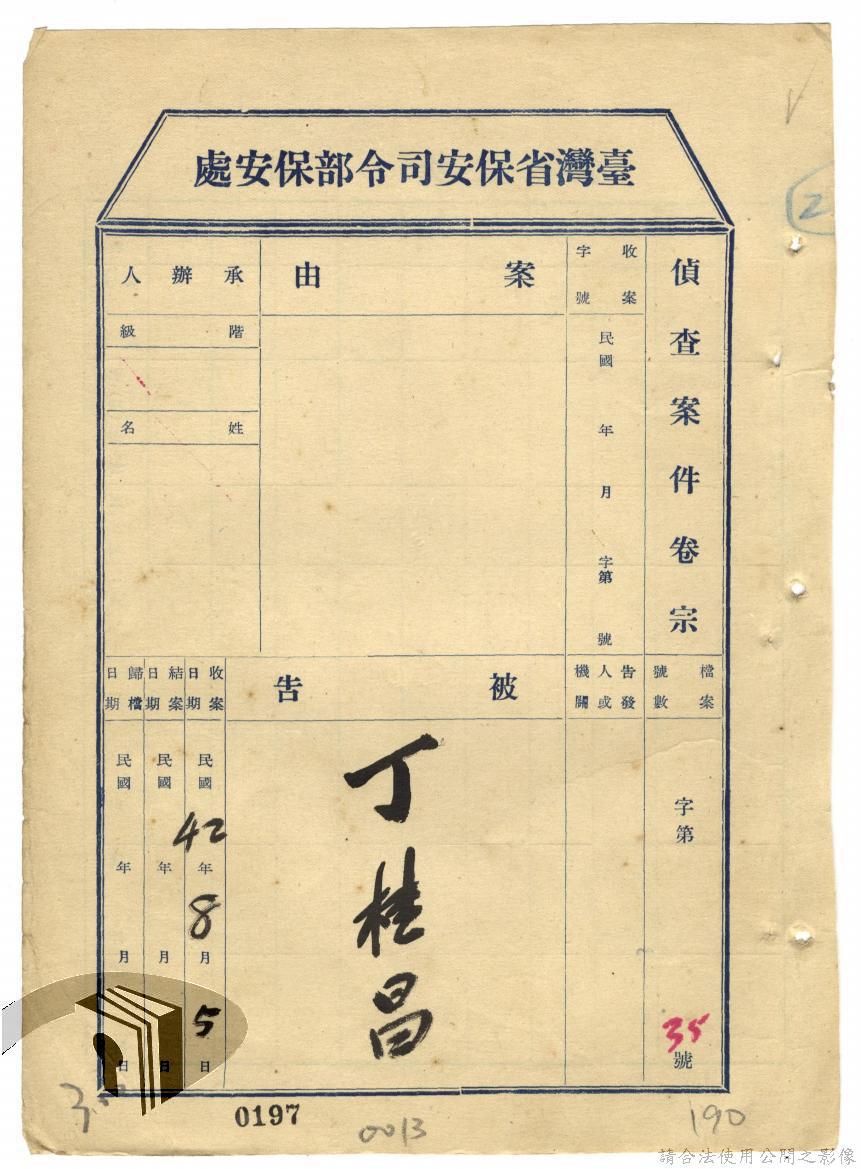 臺灣省保安司令部保安處
偵查案件卷宗
檔案號數
字第35號
收案字號
民國 年 月 字第 號
告發人或機關
案由
被告
丁桂昌
承辦人
階級
姓名
收案日期
民國42年8月5日
結案日期
民國 年 月 日
歸檔日期
民國 年 月 日
2
0197
0013
190
請合法使用公開之影像